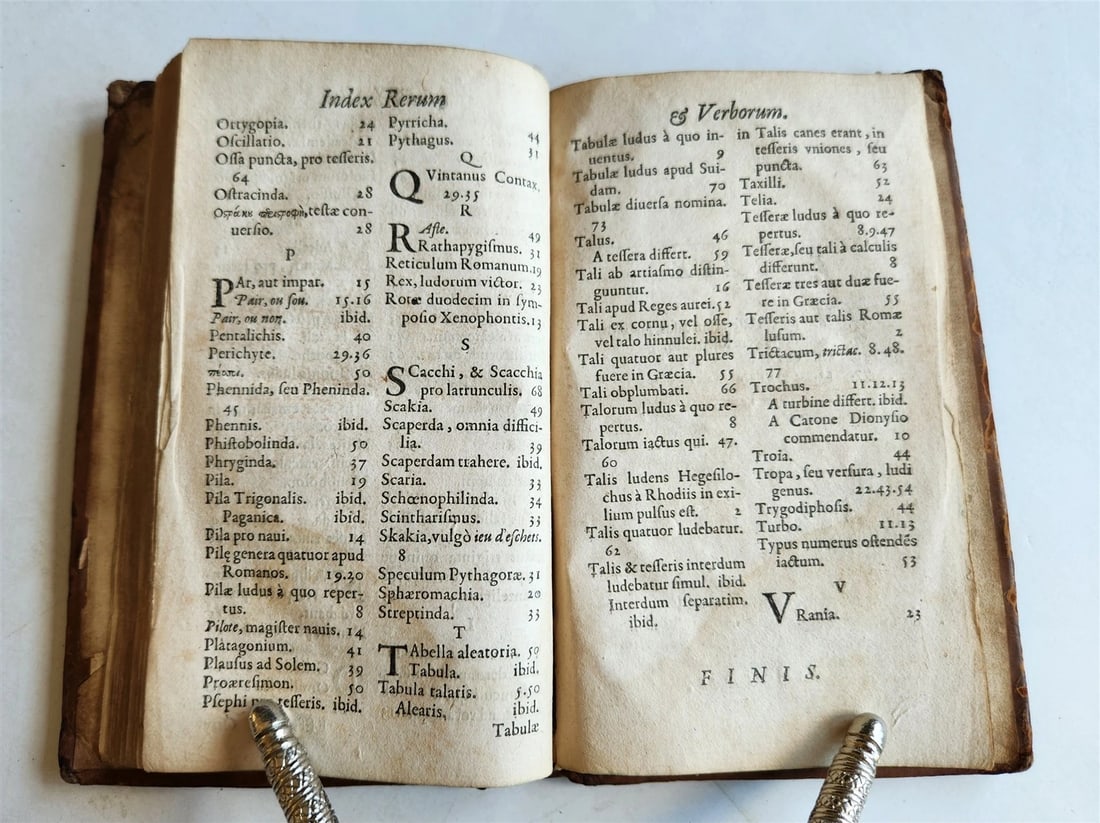 Index Rerum
Ortygopia. 24
Oſcillatio. 21
Oſſa puncta, pro teſſeris.
64
Oſtracinda. 28
teſtæ con-
uerſio. 28
P
PAr, aut impar. 15
Pair, ou ſou. 15.16
Pair, ou non. ibid.
Pentalichis. 40
Perichyte. 29.36
50
Phennida, ſeu Pheninda.
45
Phennis. ibid.
Phiſtobolinda. 50
Phryginda. 37
Pila. 19
Pila Trigonalis. ibid.
Paganica. ibid.
Pila pro naui. 14
Pilę genera quatuor apud
Romanos. 19.20
Pilæ ludus à quo reper-
tus. 8
Pilote, magiſter nauis. 14
Platagonium. 41
Plauſus ad Solem. 39
Proæreſimon. 50
Pſephi teſſeris. ibid.
Pyrricha. 44
Pythagus. 31
Q
QVintanus Contax.
29.35
R
RAſte. 49
Rathapygiſmus. 31
Reticulum Romanum. 19
Rex, ludorum victor. 23
Rotæ duodecim in ſym-
poſio Xenophontis. 13
S
SCacchi, & Scacchia
pro latrunculis. 68
Scakia. 49
Scaperda, omnia diffici-
lia. 39
Scaperdam trahere. ibid.
Scaria. 33
Schœnophilinda. 34
Scinthariſmus. 33
Skakia, vulgò ieu d'eſchets.
8
Speculum Pythagoræ. 31
Sphæromachia. 20
Streptinda. 33
T
TAbella aleatoria. 50
Tabula. ibid.
Tabula talaris. 5.50
Alearis, ibid.
Tabulæ
& Verborum.
Tabulæ ludus à quo in-
uentus. 9
Tabulæ ludus apud Sui-
dam. 70
Tabulæ diuerſa nomina.
73
Talus. 46
A teſſera differt. 59
Tali ab artiaſmo diſtin-
guuntur. 16
Tali apud Reges aurei. 52
Tali ex cornu, vel oſſe,
vel talo hinnulei. ibid.
Tali quatuor aut plures
fuere in Græcia. 55
Tali obplumbati. 66
Talorum ludus à quo re-
pertus. 8
Talorum iactus qui. 47.
60
Talis ludens Hegeſilo-
chus à Rhodiis in exi-
lium pulſus eſt. 2
Talis quatuor ludebatur.
62
Talis & teſſeris interdum
ludebatur ſimul. ibid.
Interdum ſeparatim.
ibid.
in Talis canes erant, in
teſſeris vniones, ſeu
puncta. 63
Taxilli. 52
Telia. 24
Teſſeræ ludus à quo re-
pertus. 8.9.47
Teſſeræ, ſeu tali à calculis
differunt. 8
Teſſeræ tres aut duæ fue-
re in Græcia. 55
Teſſeris aut talis Romæ
luſum. 2
Trictacum, trictac. 8.48.
77
Trochus. 11.12.13
A turbine differt. ibid.
A Catone Dionyſio
commendatur. 10
Troia. 44
Tropa, ſeu verſura, ludi
genus. 22.43.54
Trygodiphoſis. 44
Turbo. 11.13
Typus numerus oſtendēs
iactum. 53
V
VRania. 23
FINIS.